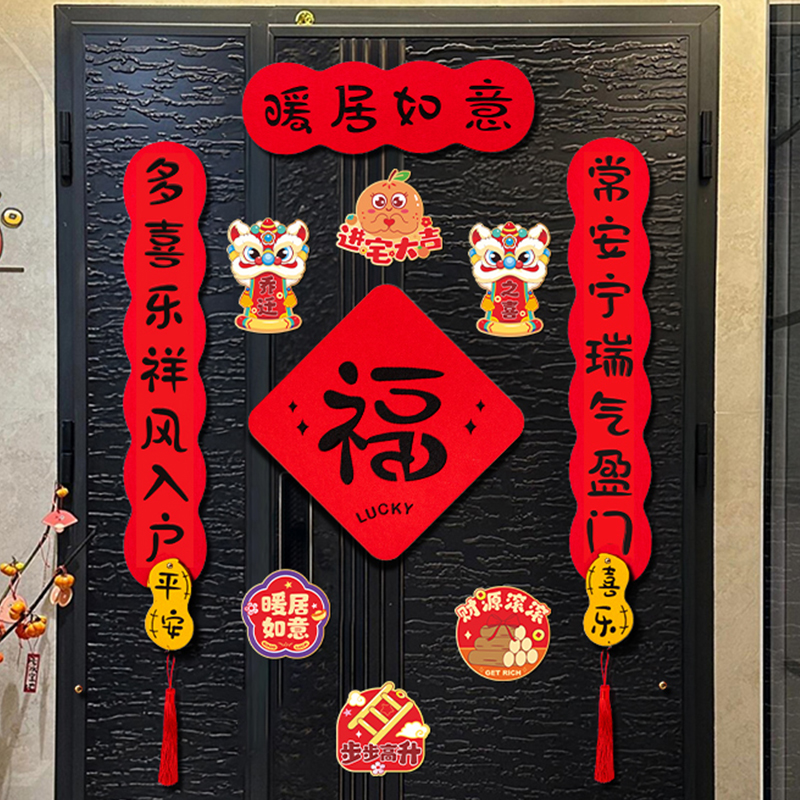 暖居如意
常安宁瑞气盈门
多喜乐祥风入户
进宅大吉
乔迁
之喜
福
LUCKY
平安
喜乐
暖居
如意
财源滚滚
GET RICH
步步高升